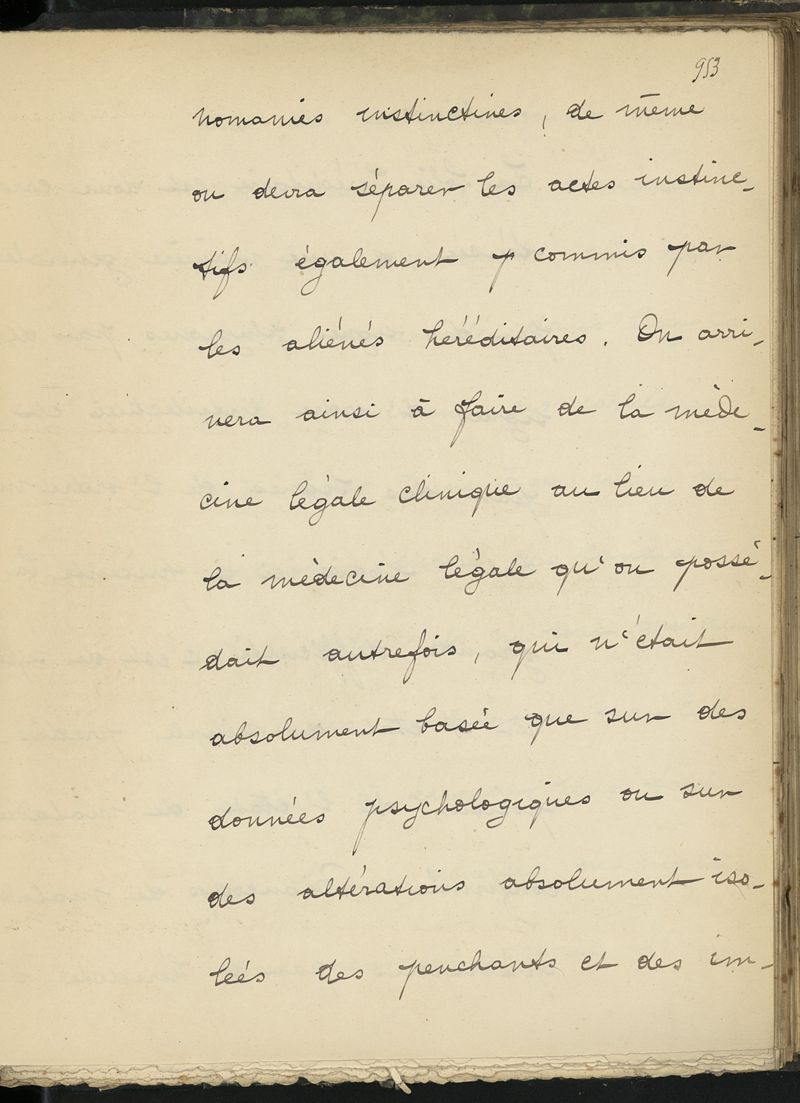 953
nomanies instinctives, de même
on devra séparer les actes instinc-
tifs également p commis par
les aliénés héréditaires. On arri-
vera ainsi à faire de la méde-
cine légale clinique au lieu de
la médecine légale qu'on possé-
dait autrefois, qui n'était
absolument basée que sur des
données psychologiques ou sur
des altérations absolument iso-
lées des penchants et des im-